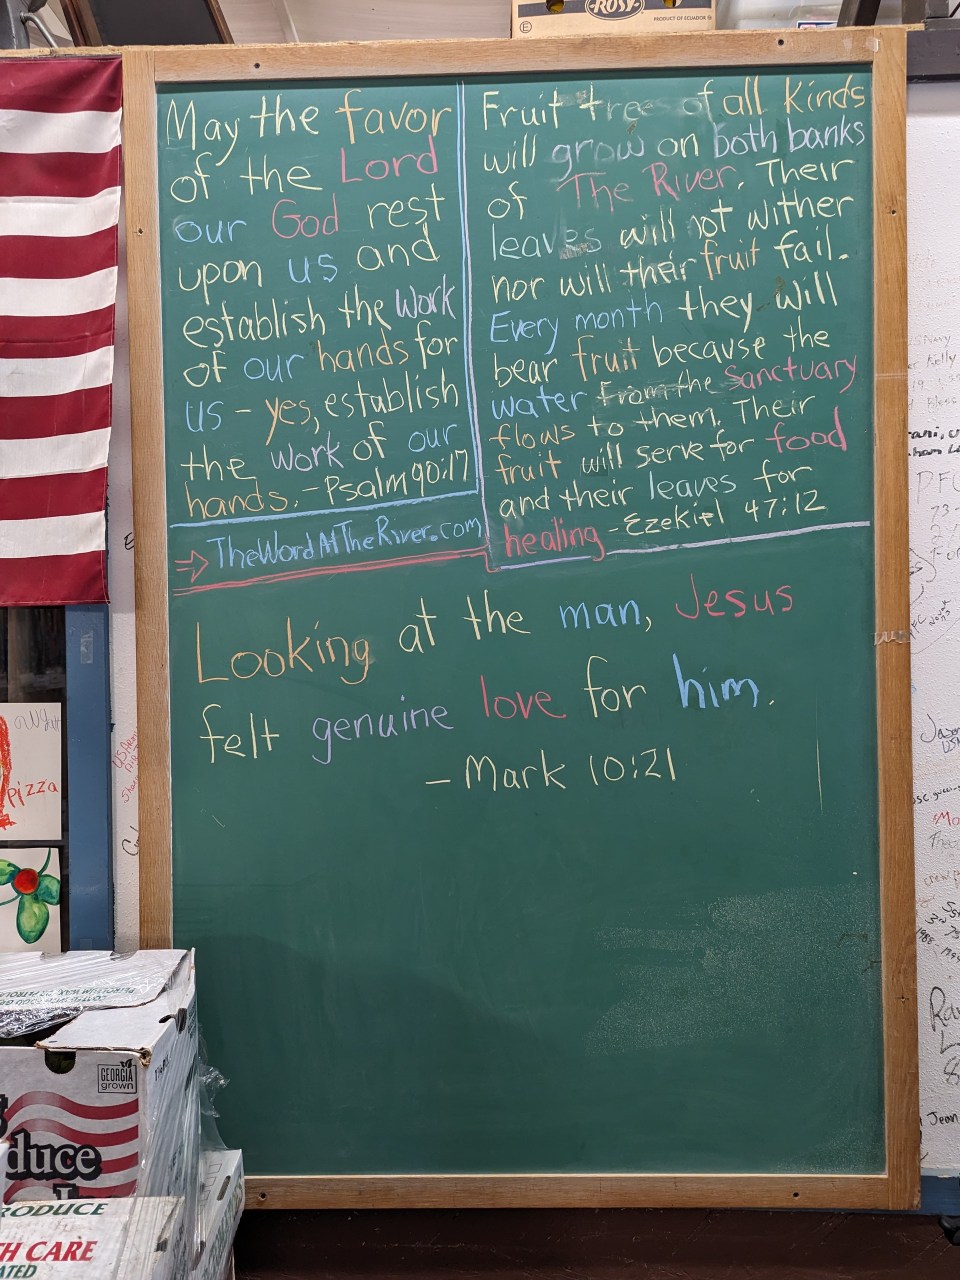 ROSY
PRODUCT OF ECUADOR
May the favor
of the Lord
our God rest
upon us and
establish the work
of our hands for
us - yes, establish
the work of our
hands. - Psalm 90:17
Fruit trees of all kinds
will grow on both banks
of The River. Their
leaves will not wither
nor will their fruit fail.
Every month they will
bear fruit because the
water from the Sanctuary
flows to them. Their
fruit will serve for food
and their leaves for
healing - Ezekiel 47:12
⇒ TheWordAtTheRiver.com
Looking at the man, Jesus
felt genuine love for him.
- Mark 10:21
Pizza
GEORGIA
grown
duce
RODUCE
TH CARE
ATED
Kelly
Jean